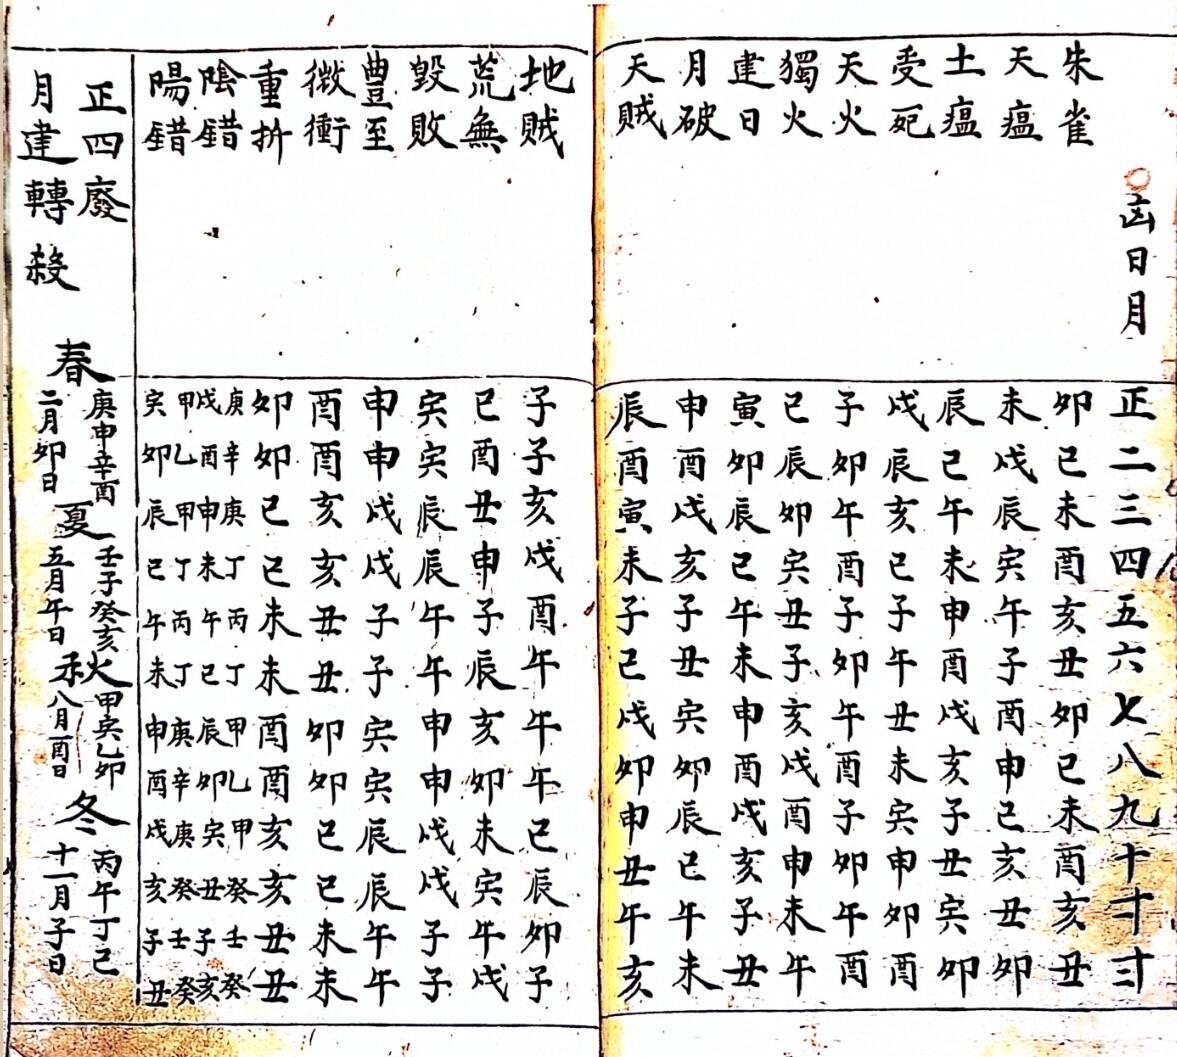 凶日月 正二三四五六七八九十十一十二
朱雀 卯巳未酉亥丑卯巳未酉亥丑
天瘟 未戌辰寅午子酉申巳亥丑卯
土瘟 辰巳午未申酉戌亥子丑寅卯
受死 戌辰亥巳子午丑未寅申卯酉
天火 子卯午酉子卯午酉子卯午酉
獨火 巳辰卯寅丑子亥戌酉申未午
建日 寅卯辰巳午未申酉戌亥子丑
月破 申酉戌亥子丑寅卯辰巳午未
天賊 辰酉寅未子巳戌卯申丑午亥
地賊 子子亥戌酉午午午巳辰卯子
荒無 巳酉丑申子辰亥卯未寅午戌
毀敗 寅寅辰辰午午申申戌戌子子
豊至 申申戌戌子子寅寅辰辰午午
微衝 酉酉亥亥丑丑卯卯巳巳未未
重折 卯卯巳巳未未酉酉亥亥丑丑
陰錯 庚戌 辛酉 庚申 丁未 丙午 丁巳 甲辰 乙卯 甲寅 癸丑 壬子 癸亥
陽錯 甲寅 乙卯 甲辰 丁巳 丙午 丁未 庚申 辛酉 庚戌 癸亥 壬子 癸丑
正四廢
月建轉殺
春 庚申辛酉
二月卯日
夏 壬子癸亥
五月午日
秋 甲寅乙卯
八月酉日
冬 丙午丁巳
十一月子日